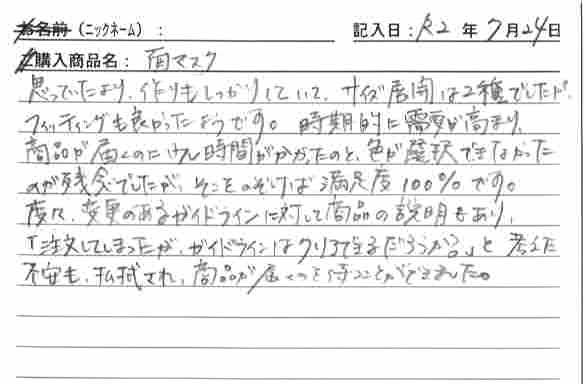 お名前（ニックネーム）： 記入日：R2年7月24日
ご購入商品名：面マスク
思っていたより、作りもしっかりしていて、サイズ展開は2種でしたが、
フィッティングも良かったようです。時期的に需要が高まり、
商品が届くのに少し時間がかかったのと、色が選択できなかった
のが残念でしたが、そこをのぞけば満足度100%です。
度々、変更のあるガイドラインに対して商品の説明もあり、
「注文してしまったが、ガイドラインはクリアできるだろうか？」と考えた
不安も、払拭され、商品が届くのを待つことができました。